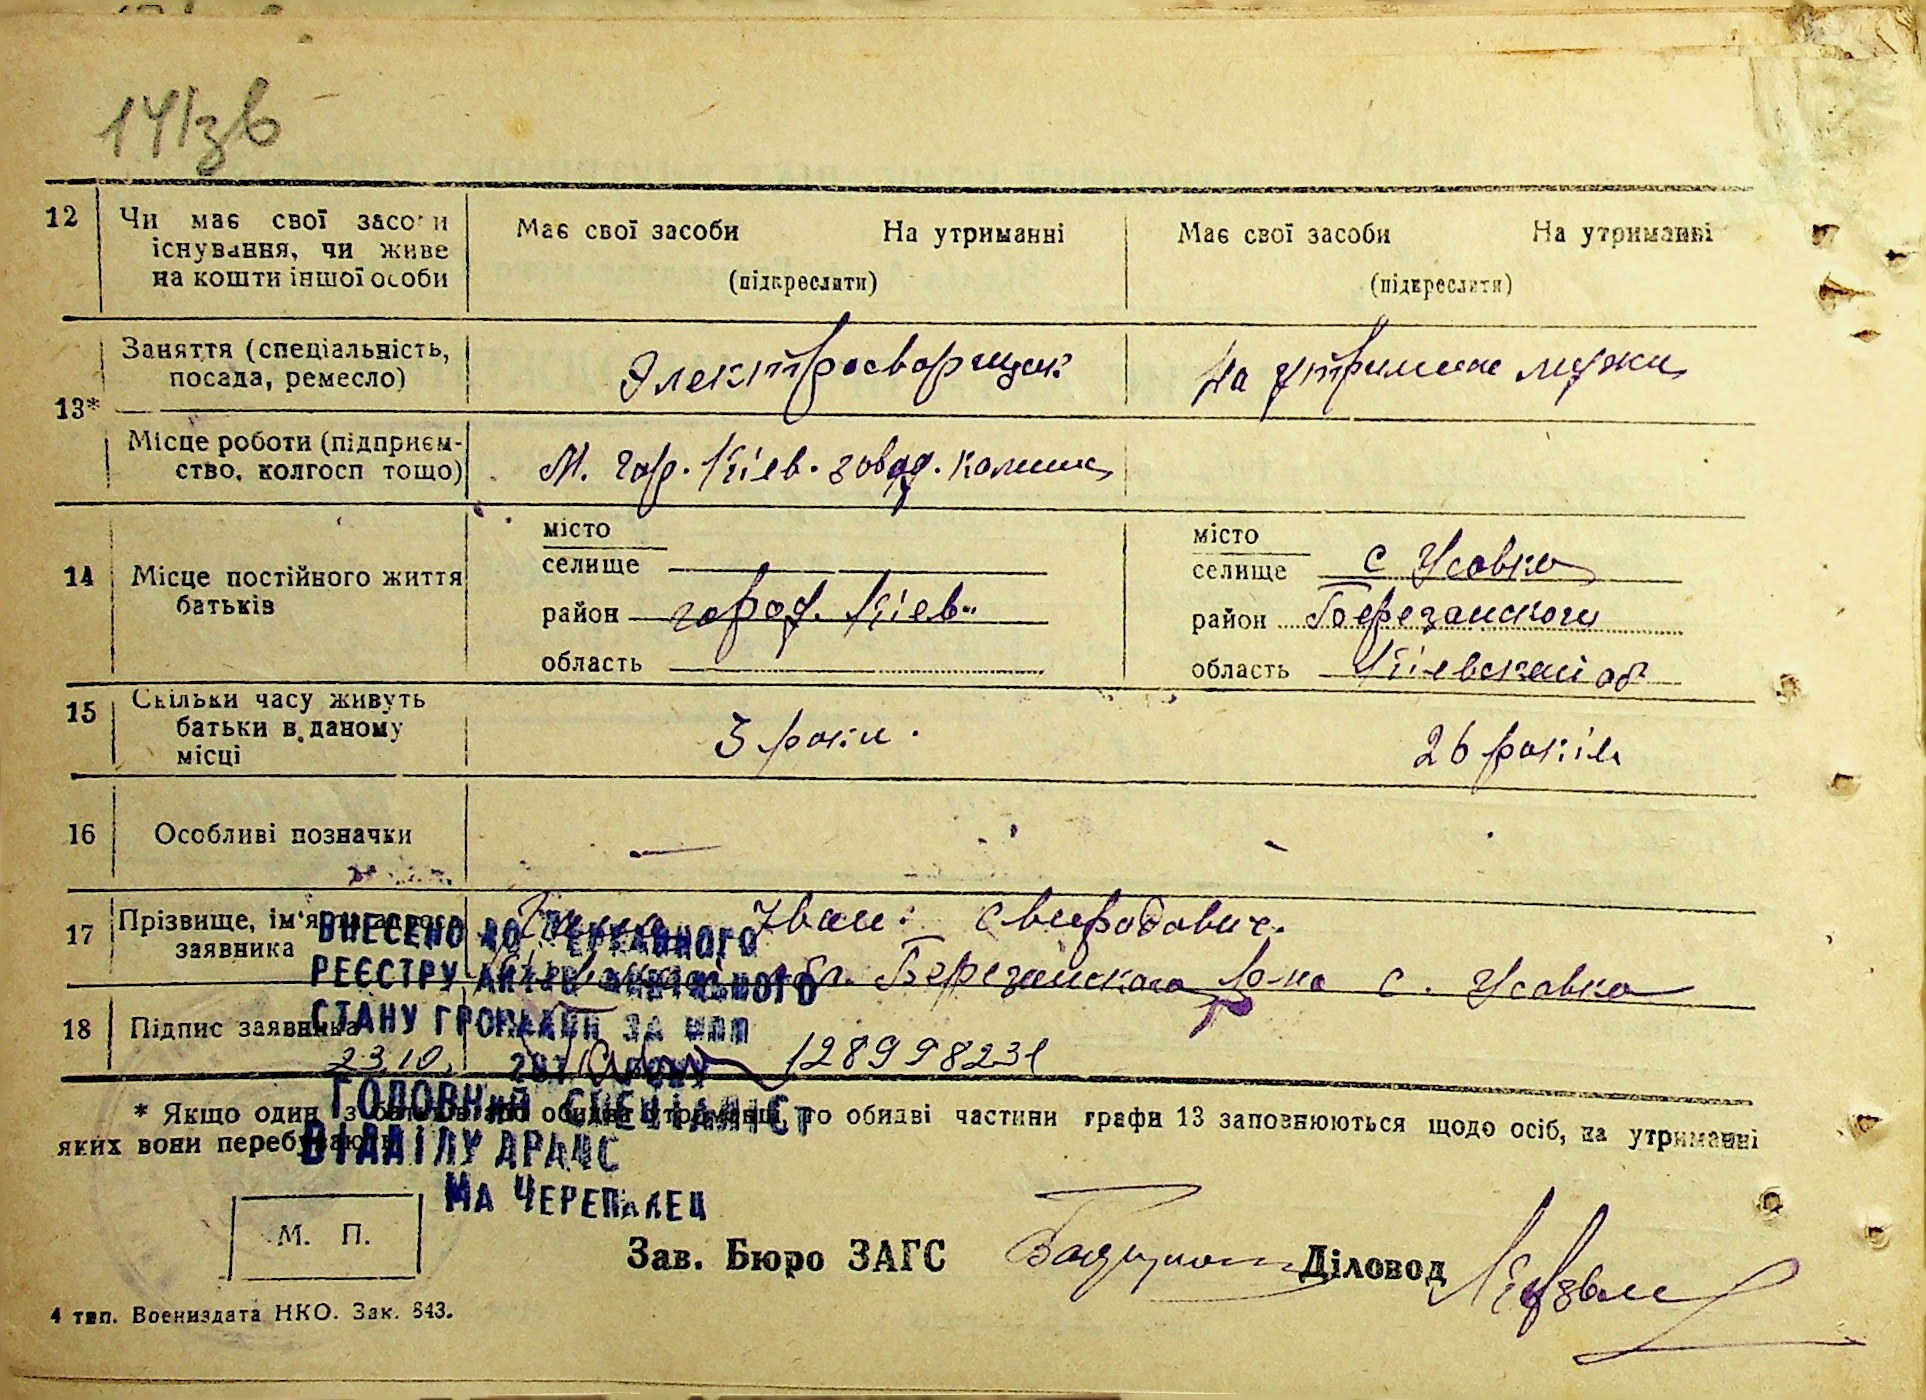 141зв
12 Чи має свої засоби Має свої засоби На утриманні Має свої засоби На утриманні
існування, чи живе
на кошти іншої особи (підкреслити) (підкреслити)
Заняття (спеціальність, Электросварщик На утримане мужа
посада, ремесло)
13*
Місце роботи (підприєм- М. гор. Кіев. завод.
ство, колгосп тощо)
місто місто
14 Місце постійного життя селище селище с Усовка
батьків район город. Кіев. район Березанского
область область Кіевской об
15 Скільки часу живуть
батьки в даному 3 роки. 26 років
місці
16 Особливі позначки —
17 Прізвище, ім'я Іван Свиридович.
заявника обл. Березанского р-на с. Усовка
18 Підпис заявника
23.10. 128998231
ВНЕСЕНО ДО ДЕРЖАВНОГО
РЕЄСТРУ АКТІВ ЦИВІЛЬНОГО
СТАНУ ГРОМАДЯН ЗА
РОКУ
ГОЛОВНИЙ СПЕЦІАЛІСТ
ВІДДІЛУ ДРАЦС
МА ЧЕРЕПАНЕЦ
* Якщо один з обидві утриманці, то обидві частини графи 13 заповнюються щодо осіб, на утриманні
яких вони перебувають
М. П.
Зав. Бюро ЗАГС Діловод
4 тип. Воениздата НКО. Зак. 843.